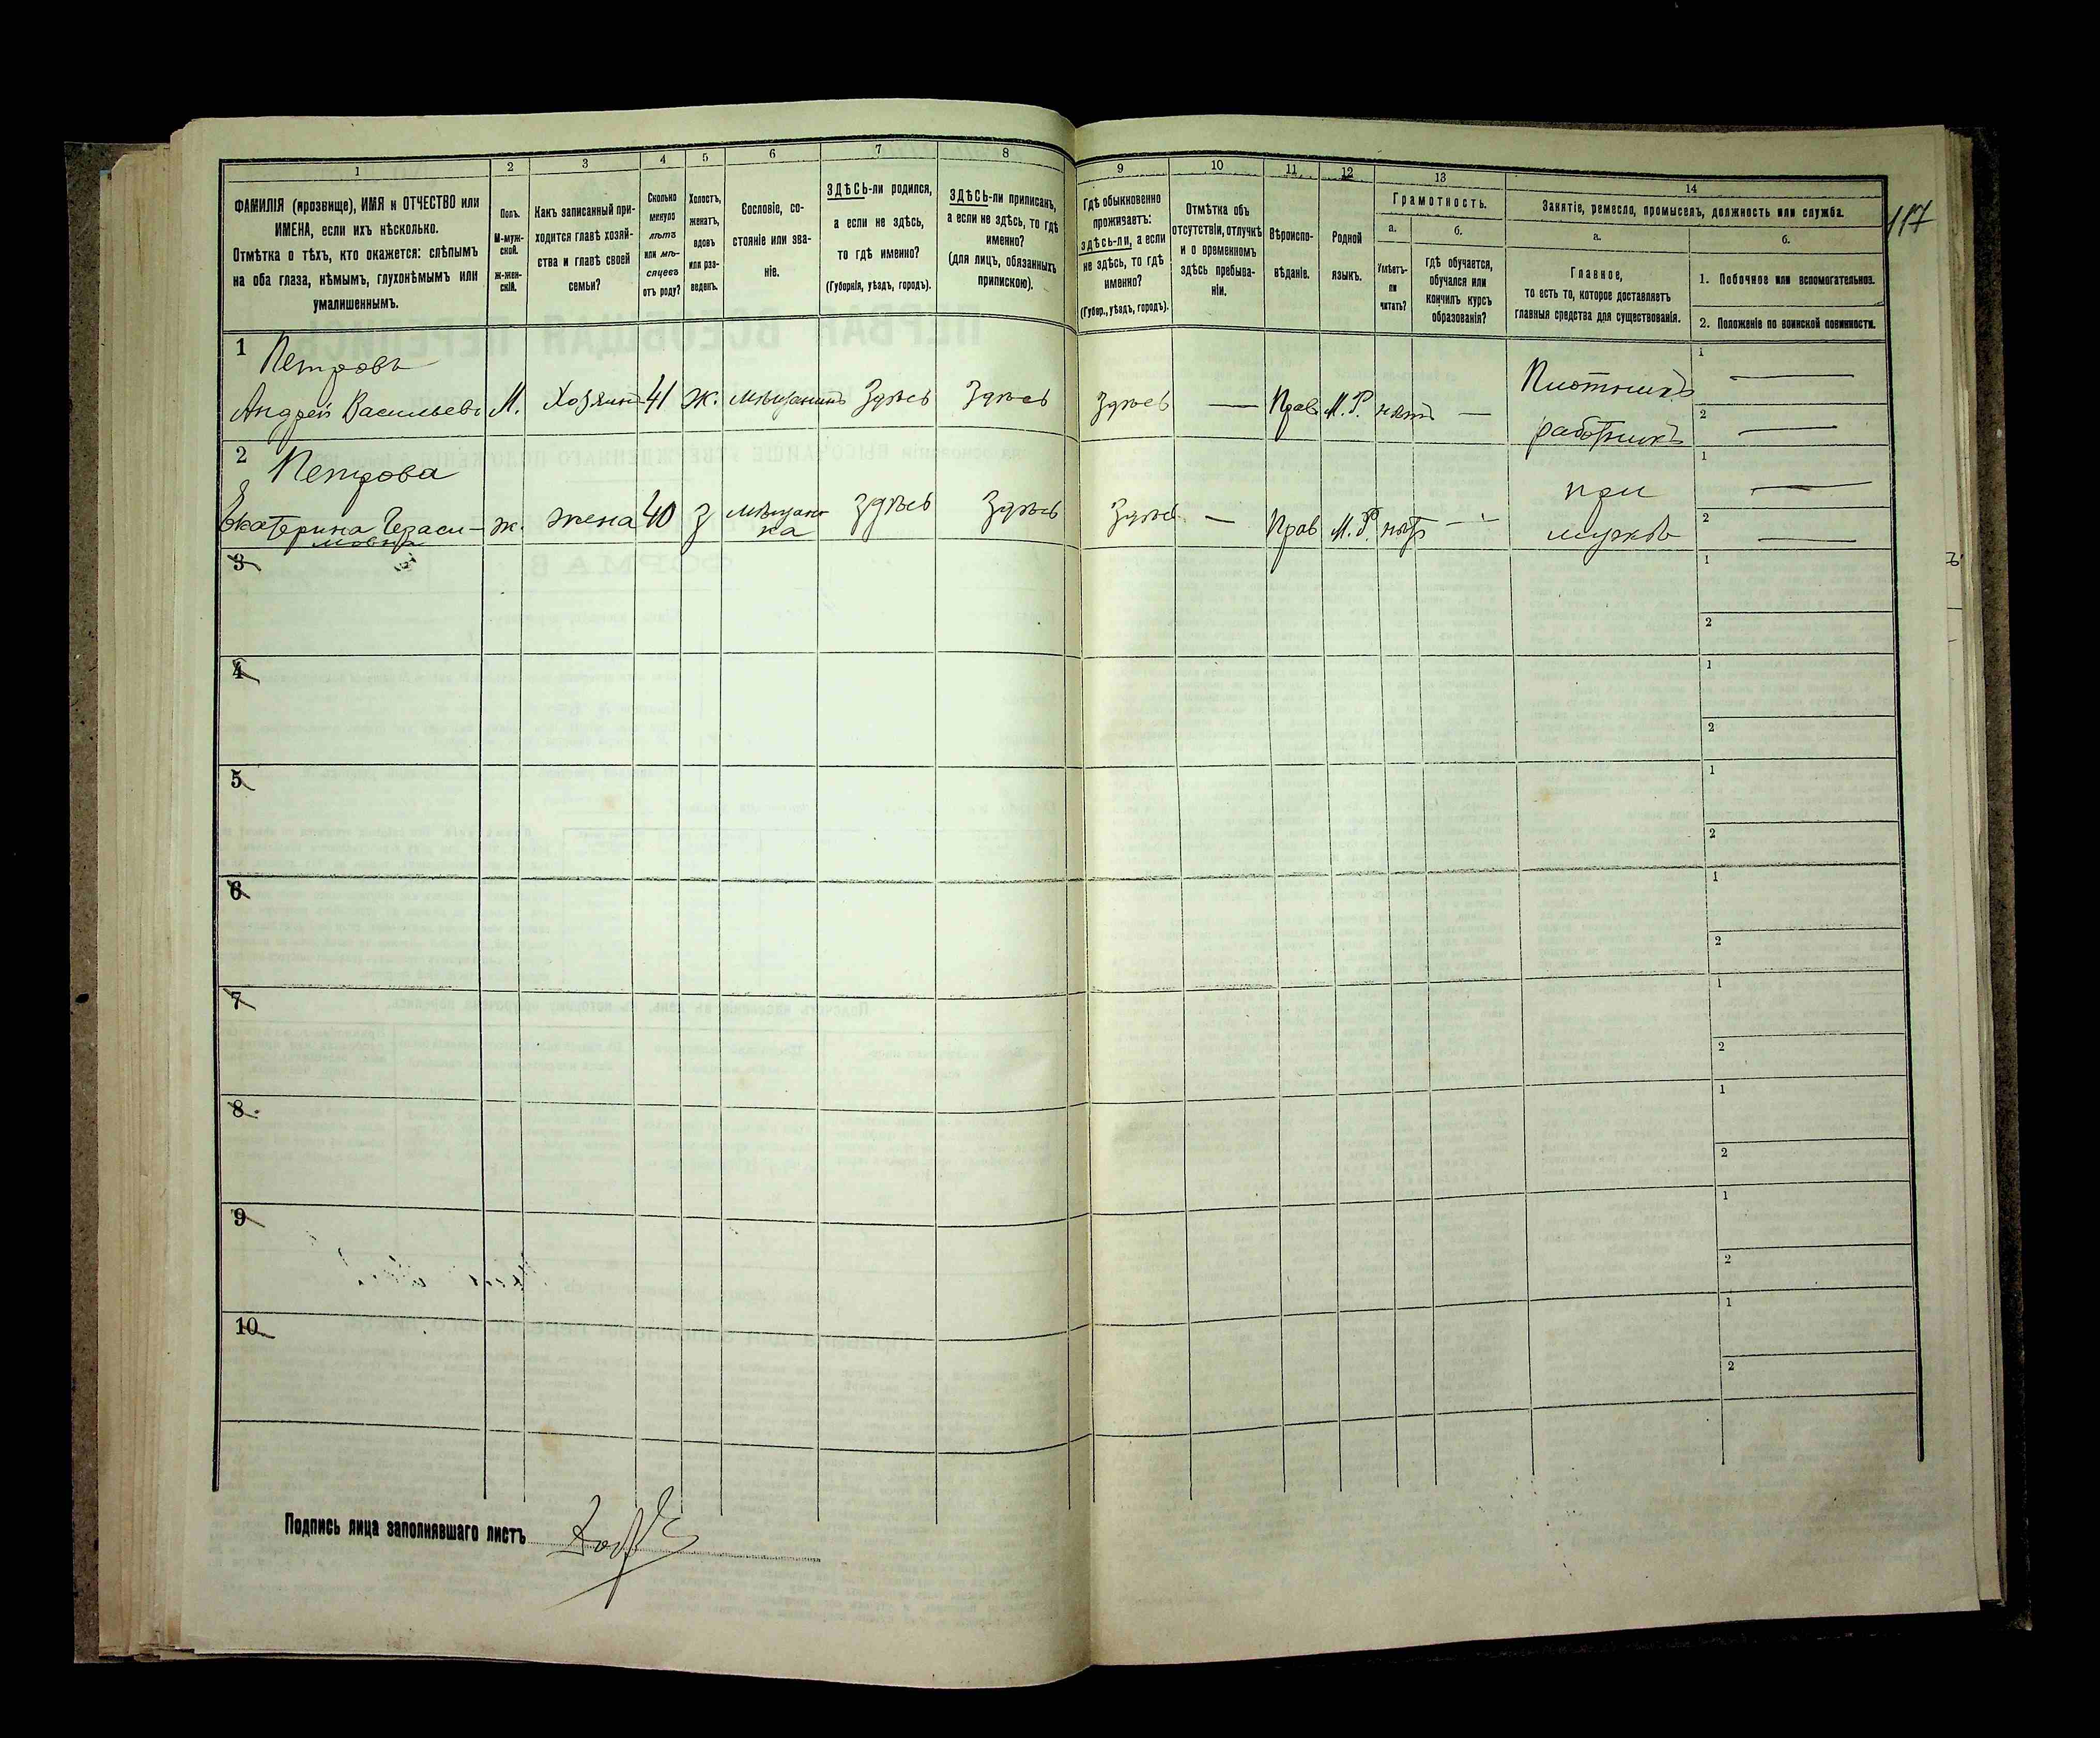 117
1
2
3
4
5
6
7
8
9
10
11
12
13
14
ФАМИЛІЯ (прозвище), ИМЯ и ОТЧЕСТВО или
ИМЕНА, если ихъ нѣсколько.
Отмѣтка о тѣхъ, кто окажется: слѣпымъ
на оба глаза, нѣмымъ, глухонѣмымъ или
умалишеннымъ.
Полъ.
М-муж-
ской.
Ж-жен-
скій.
Какъ записанный при-
ходится главѣ хозяй-
ства и главѣ своей
семьи?
Сколько
минуло
лѣтъ
или мѣ-
сяцевъ
отъ роду?
Холостъ,
женатъ,
вдовъ
или раз-
веденъ.
Сословіе, со-
стояніе или зва-
ніе.
ЗДѢСЬ-ли родился,
а если не здѣсь,
то гдѣ именно?
(Губернія, уѣздъ, городъ).
ЗДѢСЬ-ли приписанъ,
а если не здѣсь, то гдѣ
именно?
(для лицъ, обязанныхъ
припискою).
Гдѣ обыкновенно
проживаетъ:
здѣсь-ли, а если
не здѣсь, то гдѣ
именно?
(Губер., уѣздъ, городъ).
Отмѣтка объ
отсутствіи, отлучкѣ
и о временномъ
здѣсь пребыва-
ніи.
Вѣроиспо-
вѣданіе.
Родной
языкъ.
Грамотность.
а.
Умѣетъ-
ли
читать?
б.
Гдѣ обучается,
обучался или
кончилъ курсъ
образованія?
Занятіе, ремесло, промыселъ, должность или служба.
а.
Главное,
то есть то, которое доставляетъ
главныя средства для существованія.
б.
1. Побочное или вспомогательное.
2. Положеніе по воинской повинности.
1 Петровъ
Андрей Васильевъ М. Хозяинъ 41 Ж. мѣщанинъ Здѣсь Здѣсь Здѣсь — Прав М.Р. нѣтъ — Плотникъ
работникъ
1 —
2 —
2 Петрова
Екатерина Гераси-
мовна
ж. жена 40 З мѣщан
ка
Здѣсь Здѣсь Здѣсь — Прав М.Р. нѣт — при
мужѣ
1 —
2 —
3
1
2
4
1
2
5
1
2
6
1
2
7
1
2
8
1
2
9
1
2
10
1
2
Подпись лица заполнявшаго листъ